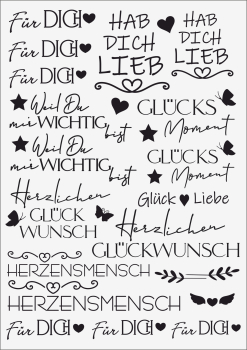 Für DICH
Für DICH
Für DICH
HAB
DICH
LIEB
HAB
DICH
LIEB
Weil Du
mir WICHTIG
bist
GLÜCKS
Moment
Weil Du
mir WICHTIG
bist
GLÜCKS
Moment
Herzlichen
GLÜCK
WUNSCH
Glück Liebe
Herzlichen
GLÜCKWUNSCH
HERZENSMENSCH
HERZENSMENSCH
Für DICH Für DICH Für DICH